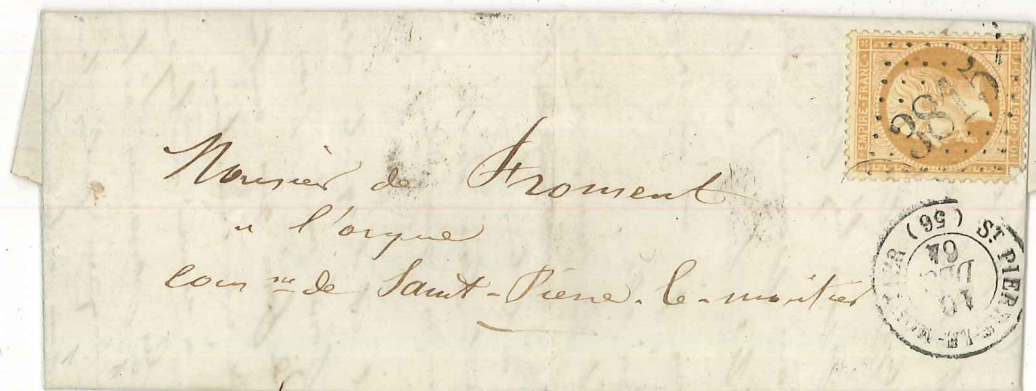 EMPIRE FRANC
Monsieur de Froment
a l'orgue
com ne de Saint-Pierre-le-moutier
ST PIERRE-LE-MOUTIER (56)
10
DEC
64